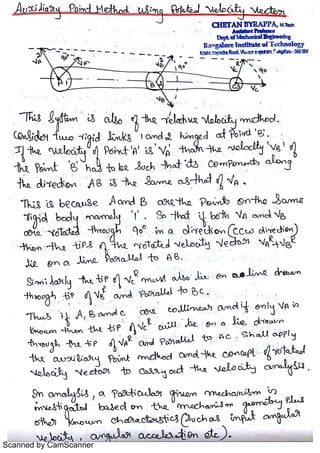 Auxiliary Point Method using Rotated Velocity Vector
CHETAN BYRAPPA, M.Tech
Assistant Professor
Dept. of Mechanical Engineering
Bangalore Institute of Technology
90°
90°
90
VA
VB
VC
A
1
B
2
C
This System is also of the relative velocity method.
Consider two rigid links 1 and 2 hinged at point 'B'.
If the velocity of Point 'A' is 'VA' than the velocity 'VB' of
the Point 'B' had to be such that its components along
the direction AB is the same as that of VA.
This is because A and B are the Points on the same
rigid body namely '1'. So that if both VA and VB
are rotated through 90° in a direction (CCW direction)
then the tips of the rotated velocity vector VAᴿ & VBᴿ
lie on a line Parallel to AB.
Similarly the tip of VCᴿ must also lie on a line drawn
through tip of VBᴿ and Parallel to BC.
Thus if A, B and C are collinear and if only VA is
known then the tip of VCᴿ will lie on a lie drawn
through the tip of VAᴿ and Parallel to AC. Shall apply
the auxiliary Point method and the concept of rotated
velocity vector to carry out the velocity analysis.
In analysis, a particular given mechanism is
investigated based on the mechanism geometry plus
other known characteristics (such as input angular
velocity, angular acceleration etc).
Scanned by CamScanner